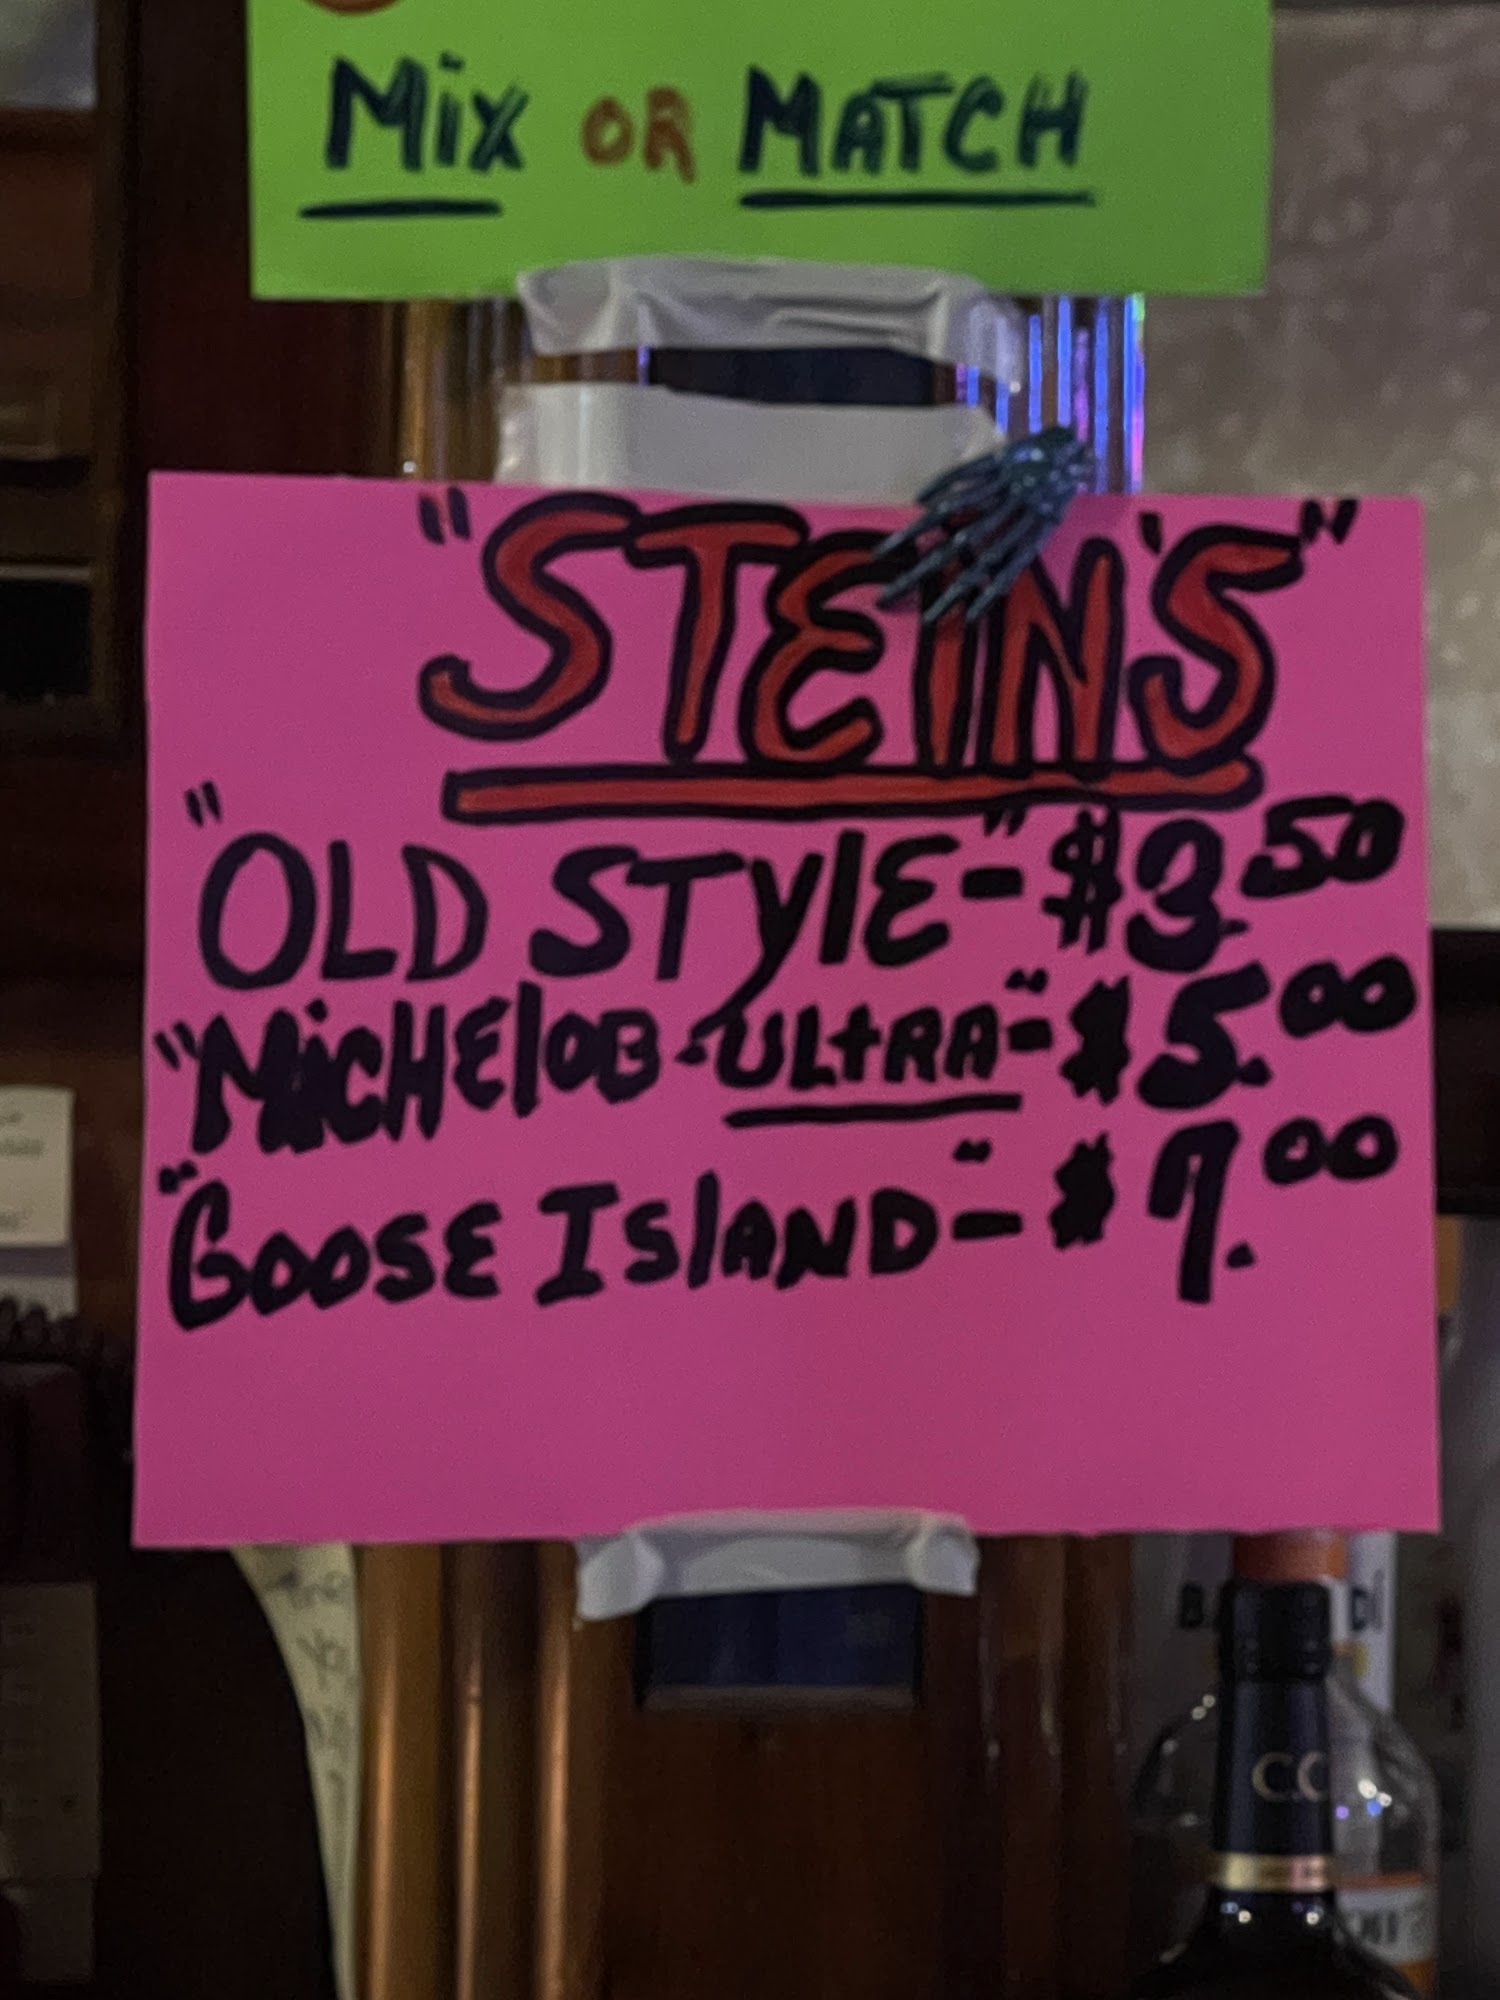 MiX OR MATCH
"STEIN'S"
"OLD STylE"-$3.50
"MiCHElOB-ULtRA"-$5.00
"GOOSE IslAND"-$7.00
C.C